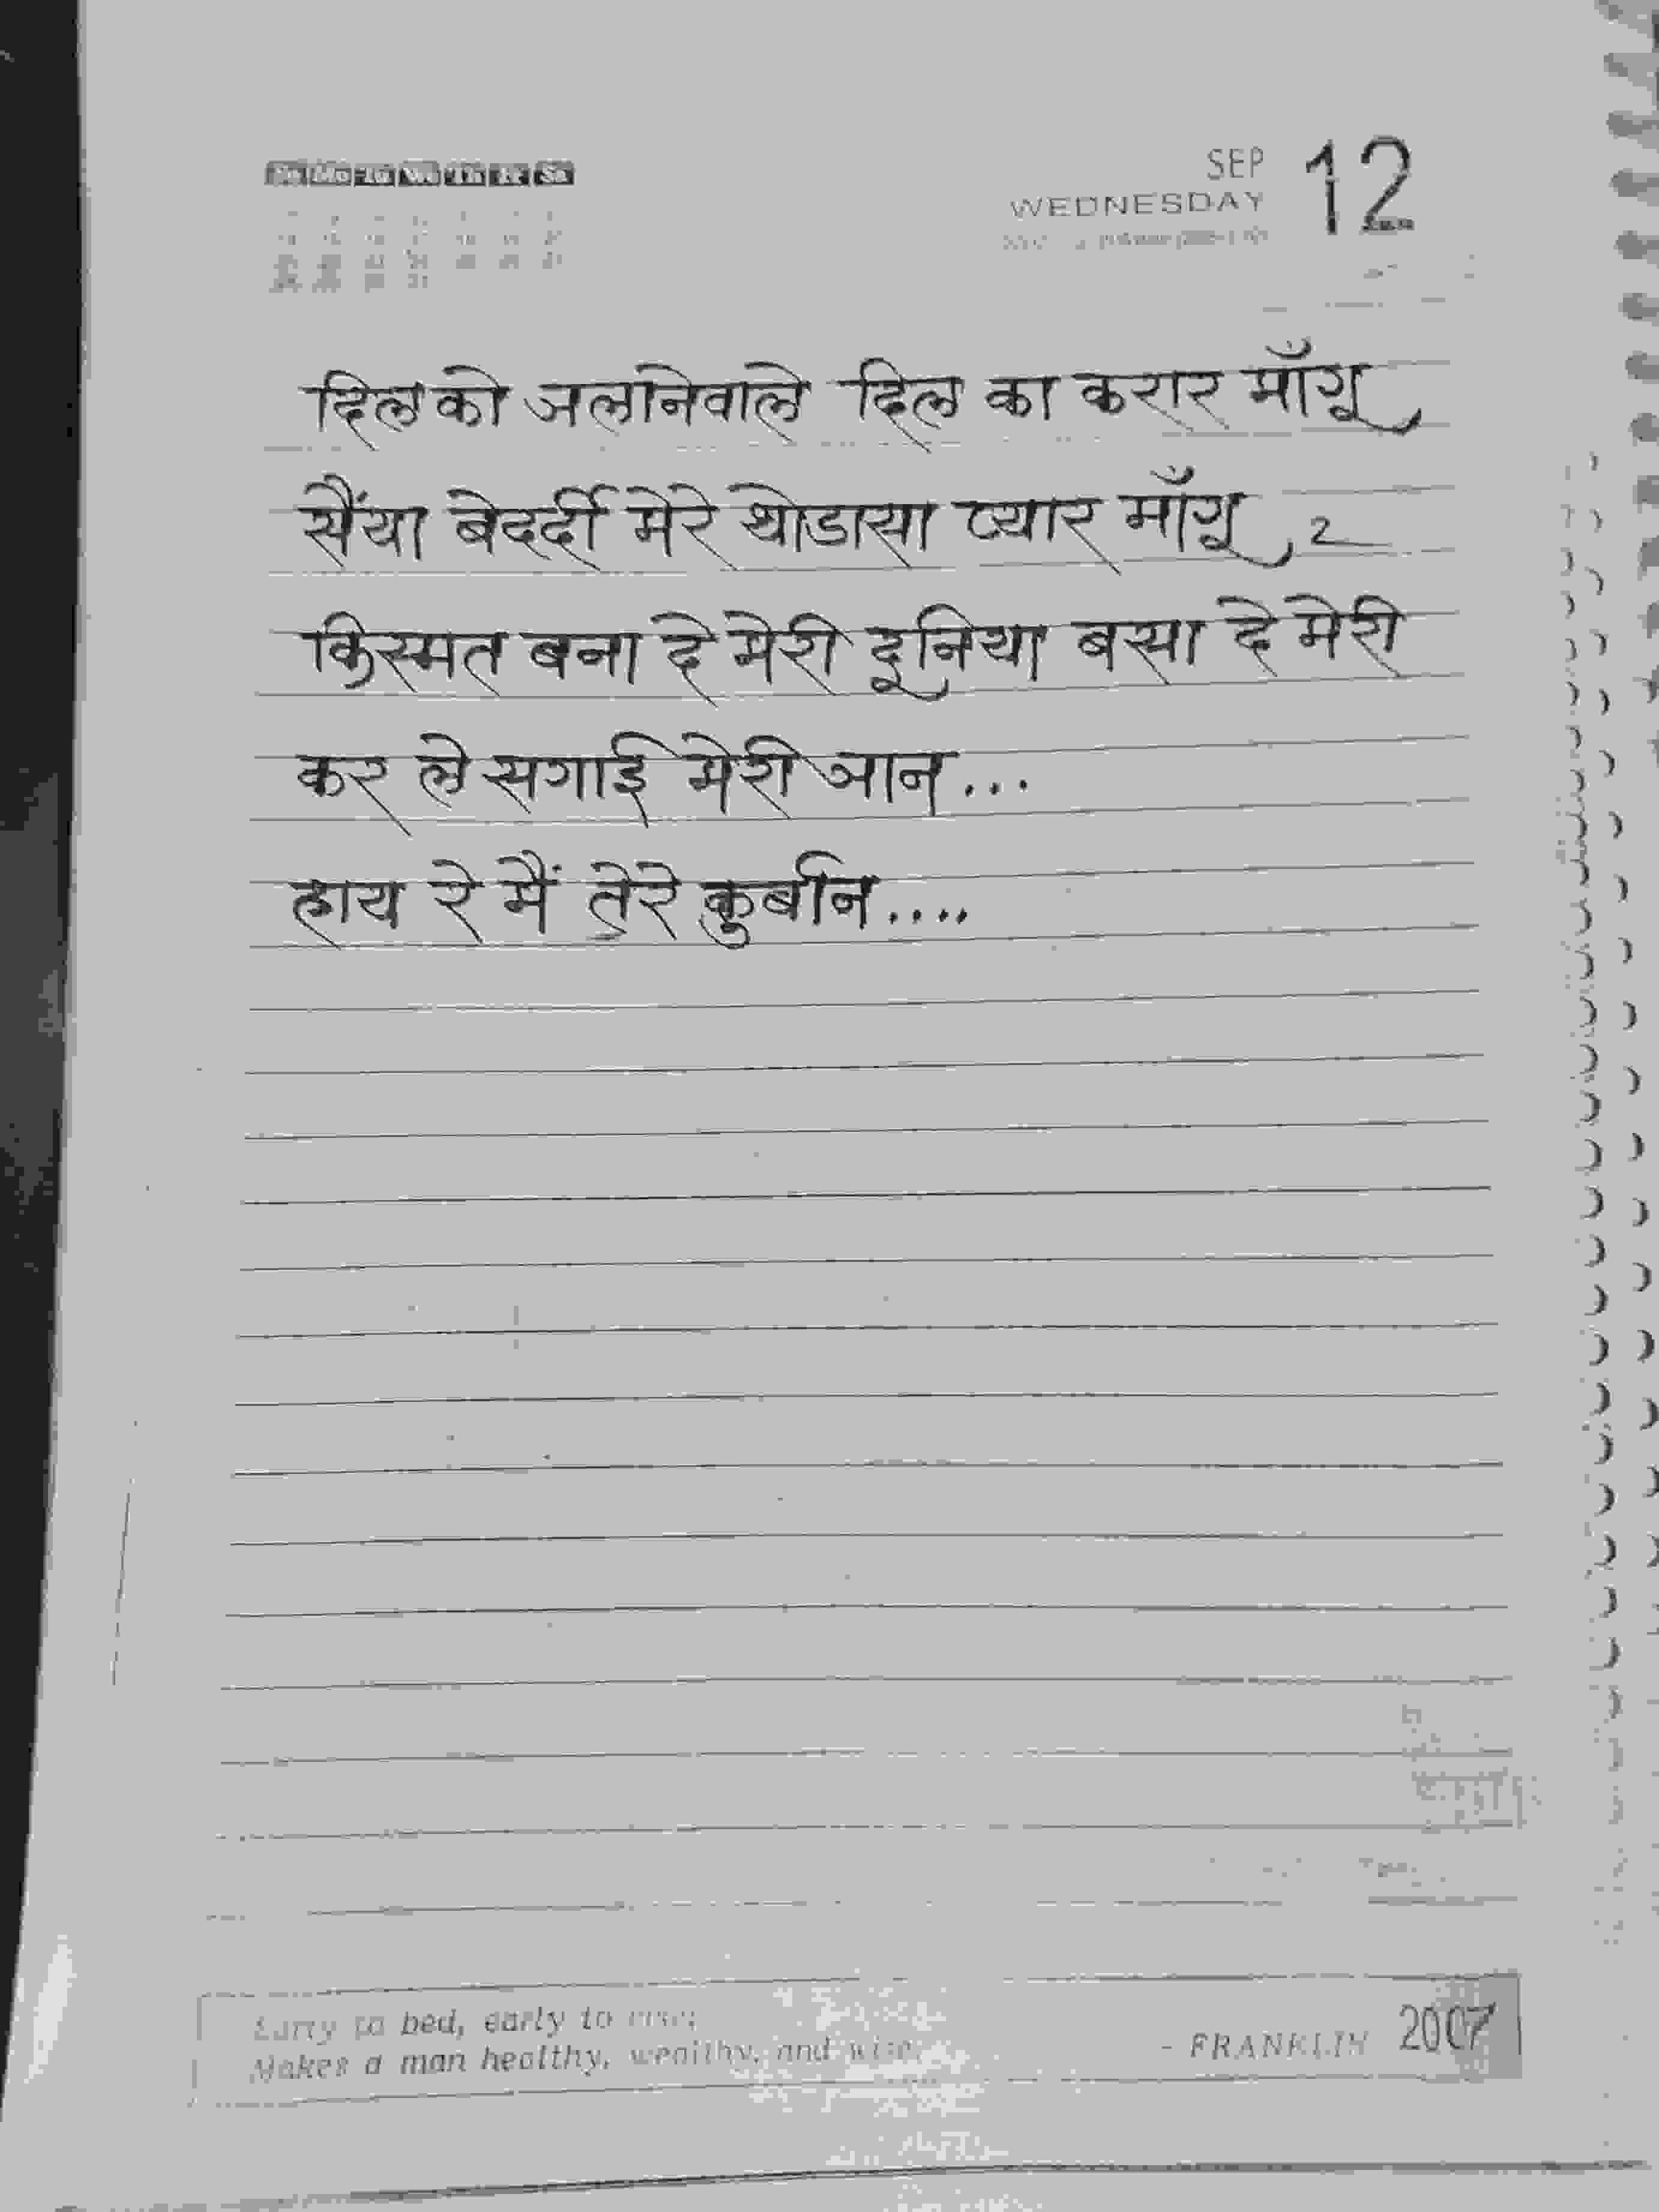 SEP 12
WEDNESDAY
दिल को जलानेवाले दिल का करार माँगू
सैंया बेदर्दी मेरे थोडासा प्यार माँगू 2
किस्मत बना दे मेरी दूनिया बसा दे मेरी
कर ले सगाई मेरी जान...
हाय रे मैं तेरे कुर्बान....
Early to bed, early to rise;
Makes a man healthy, wealthy, and wise.
- FRANKLIN 2007